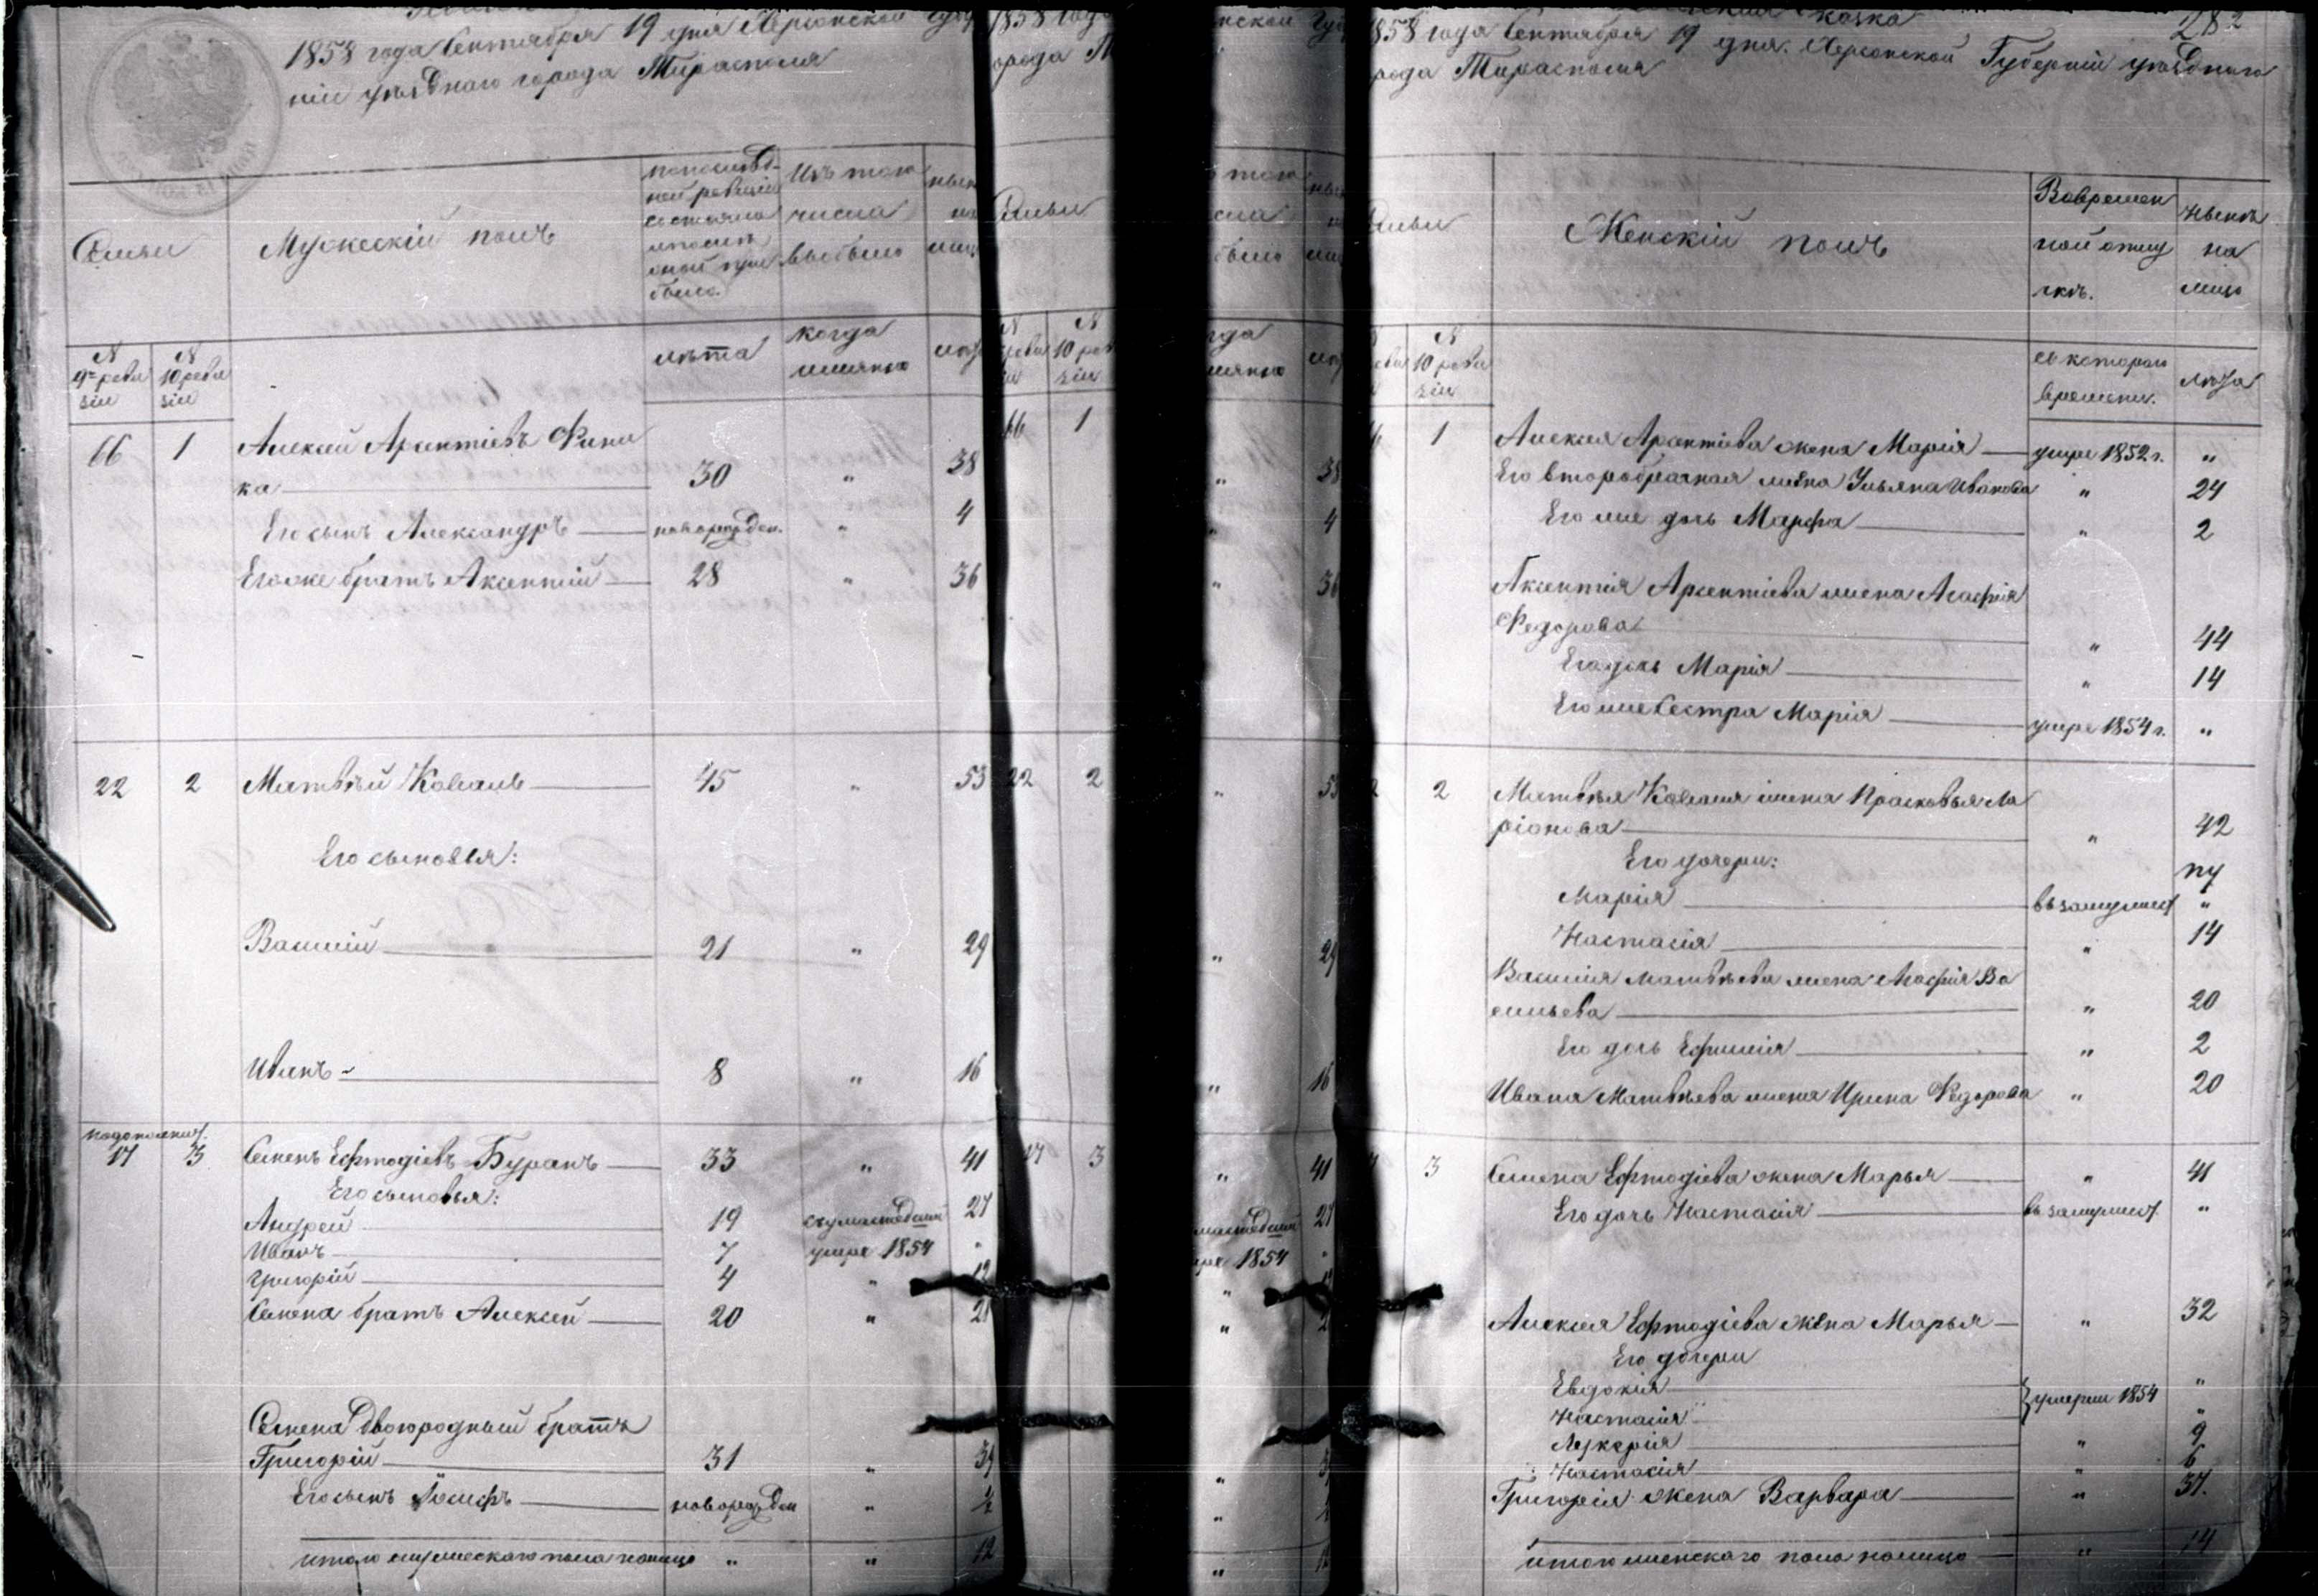 1858 года Сентября 19 дня Херсонской Губер
ніи уѣзднаго города Тирасполя
Семьи
Мужескій полъ
По послѣд-
ней ревизіи
состояло
и послѣ
оной при
было.
Изъ того
числа
выбыло
нынѣ
на
лицо
N
9й реви
зіи
N
10 реви
зіи
лѣта
когда
именно
лѣта
66 1 Алексѣй Арсентіевъ Фини
ка 30 " 38
Его сынъ Александръ новорожден. " 4
Его же братъ Аксентій 28 " 36
22 2 Матвѣй Коваль 45 " 53
Его сыновья:
Василій 21 " 29
Иванъ 8 " 16
по дополнит.
17 3 Семенъ Ефтодіевъ Буранъ 33 " 41
Его сыновья:
Андрей 19 сумасшедшій 27
Иванъ 7 умре 1854 "
Григорій 4 " 12
Семена братъ Алексѣй 20 " 28
Семена двоюродный братъ
Григорій 31 " 39
Его сынъ Іосифъ новорожден " ½
Итого мужескаго пола налицо " " 12
1858 года
орода Т
Семьи
N
реви
зіи
N
10 рев
зіи
66 1
22 2
17 3
нской Губ
ъ того
сла
было
нын
на
лиц
гда
именно
лѣт
" 38
" 4
" 36
" 53
" 29
" 16
" 41
масшедшій 27
мре 1854 "
" 12
" 2
" 3
" ½
" 12
сказка
282
858 года Сентября 19 дня. Херсонской Губерніи уѣзднаго
рода Тирасполя
емьи
Женскій полъ
Во времен
ной отлу
чкѣ.
Нынѣ
на
лицо
N
10 реви
зіи
съ котораго
времени.
лѣта
6 1 Алексѣя Арсентіева жена Марія умре 1852 г. "
Его второбрачная жена Ульяна Иванова " 24
Его же дочь Марфа " 2
Аксентія Арсентіева жена Агафія
Федорова " 44
Его дочь Марія " 14
Его же сестра Марія умре 1854 г. "
2 2 Матвѣя Коваля жена Прасковья Ла
ріонова " 42
Его дочери:
Марія въ замужест "
Настасія " 14
Василія Матвѣева жена Агафія Ва
сильева " 20
Его дочь Ефимія " 2
Ивана Матвѣева жена Ирина Федорова " 20
7 3 Семена Ефтодіева жена Марья " 41
Его дочь Настасія въ замужест. "
Алексѣя Ефтодіева жена Марья " 32
Его дочери
Евдокія } умерли 1854 "
Настасія "
Лукерія " 9
Настасія " 6
Григорія жена Варвара " 37.
Итого женскаго пола налицо " 14